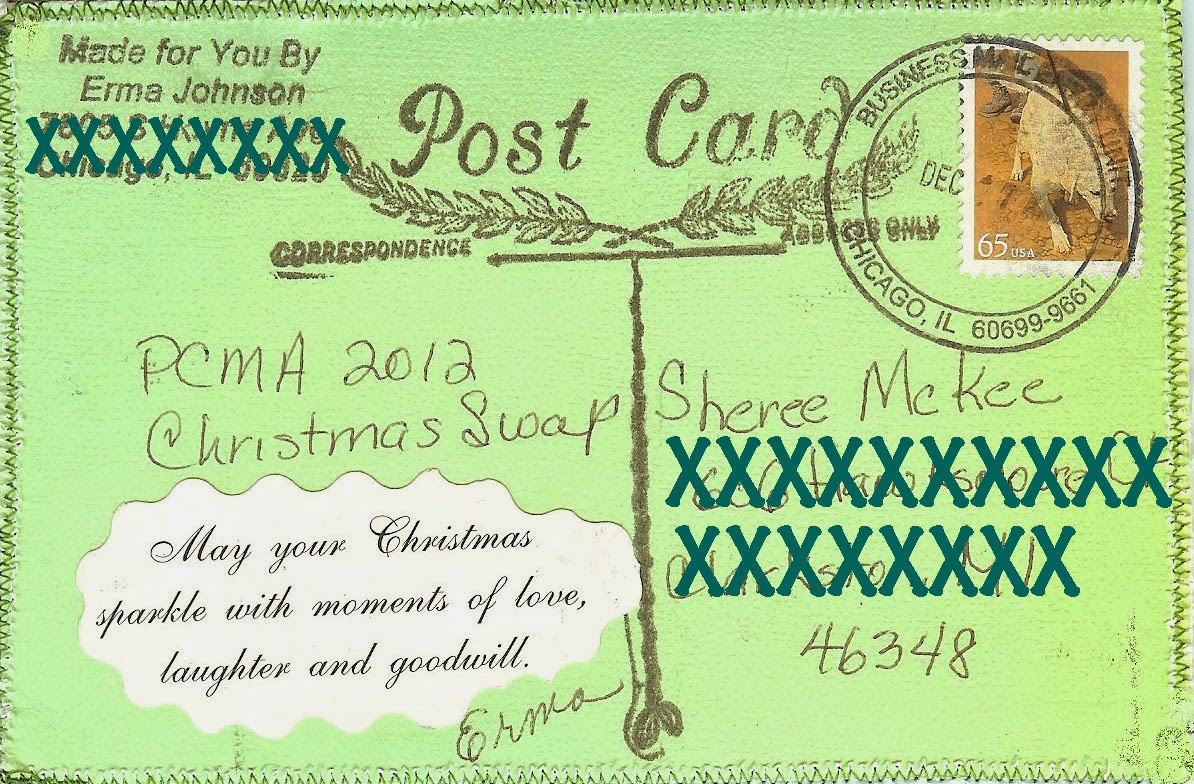 Made for You By
Erma Johnson
XXXXXXXX
Chicago, IL
Post Card
CORRESPONDENCE
ADDRESS ONLY
BUSINESS MAIL
DEC
CHICAGO, IL 60699-9661
65 USA
PCMA 2012
Christmas Swap
May your Christmas
sparkle with moments of love,
laughter and goodwill.
Erma
Sheree McKee
XXXXXXXXXX
XXXXXXXX
46348